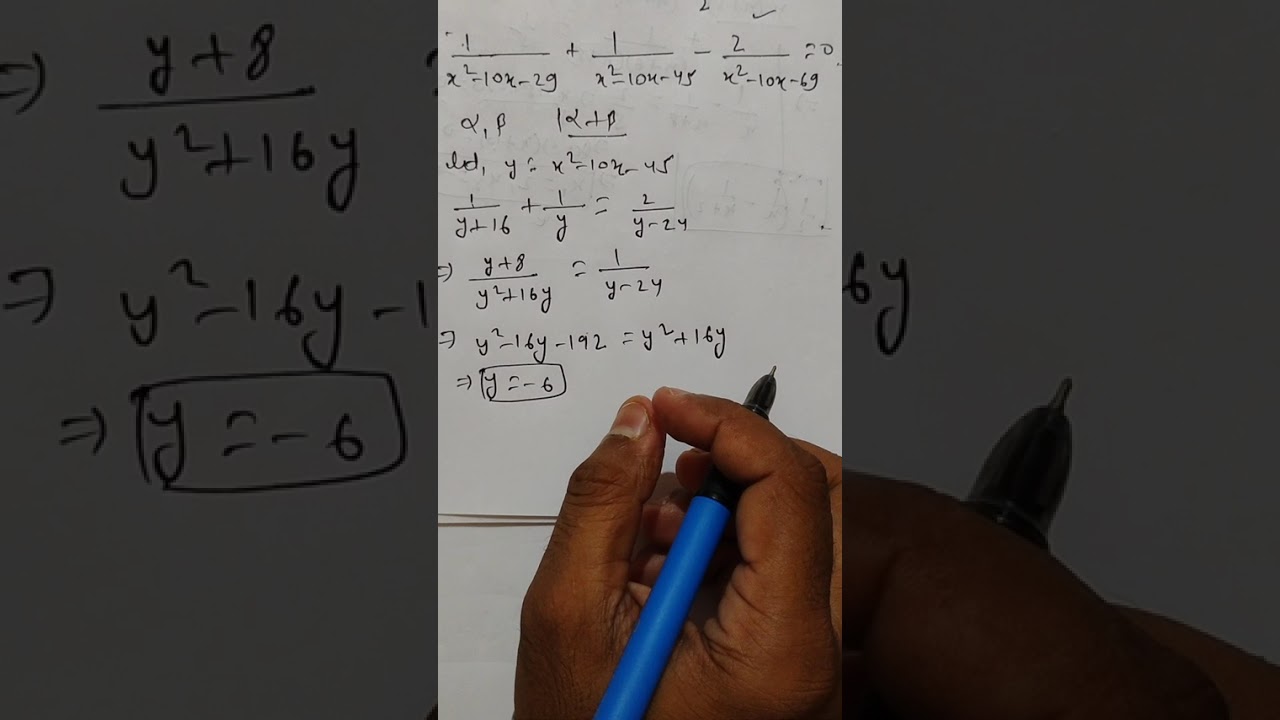 1/(x²-10x-29) + 1/(x²-10x-45) - 2/(x²-10x-69) = 0
α, β |α+β
let, y = x²-10x-45
1/(y+16) + 1/y = 2/(y-24)
⇒ (y+8)/(y²+16y) = 1/(y-24)
⇒ y²-16y-192 = y²+16y
⇒ y = -6